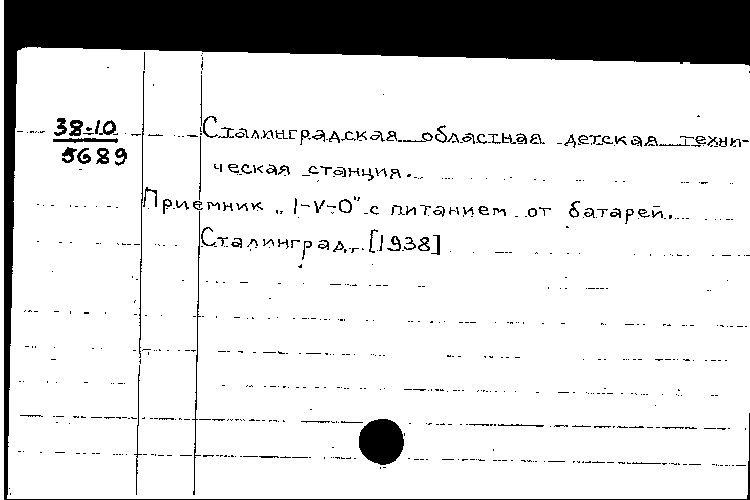 38-10
5689
Сталинградская областная детская техни-
ческая станция.
Приемник „1-V-0" с питанием от батарей.
Сталинград, [1938]